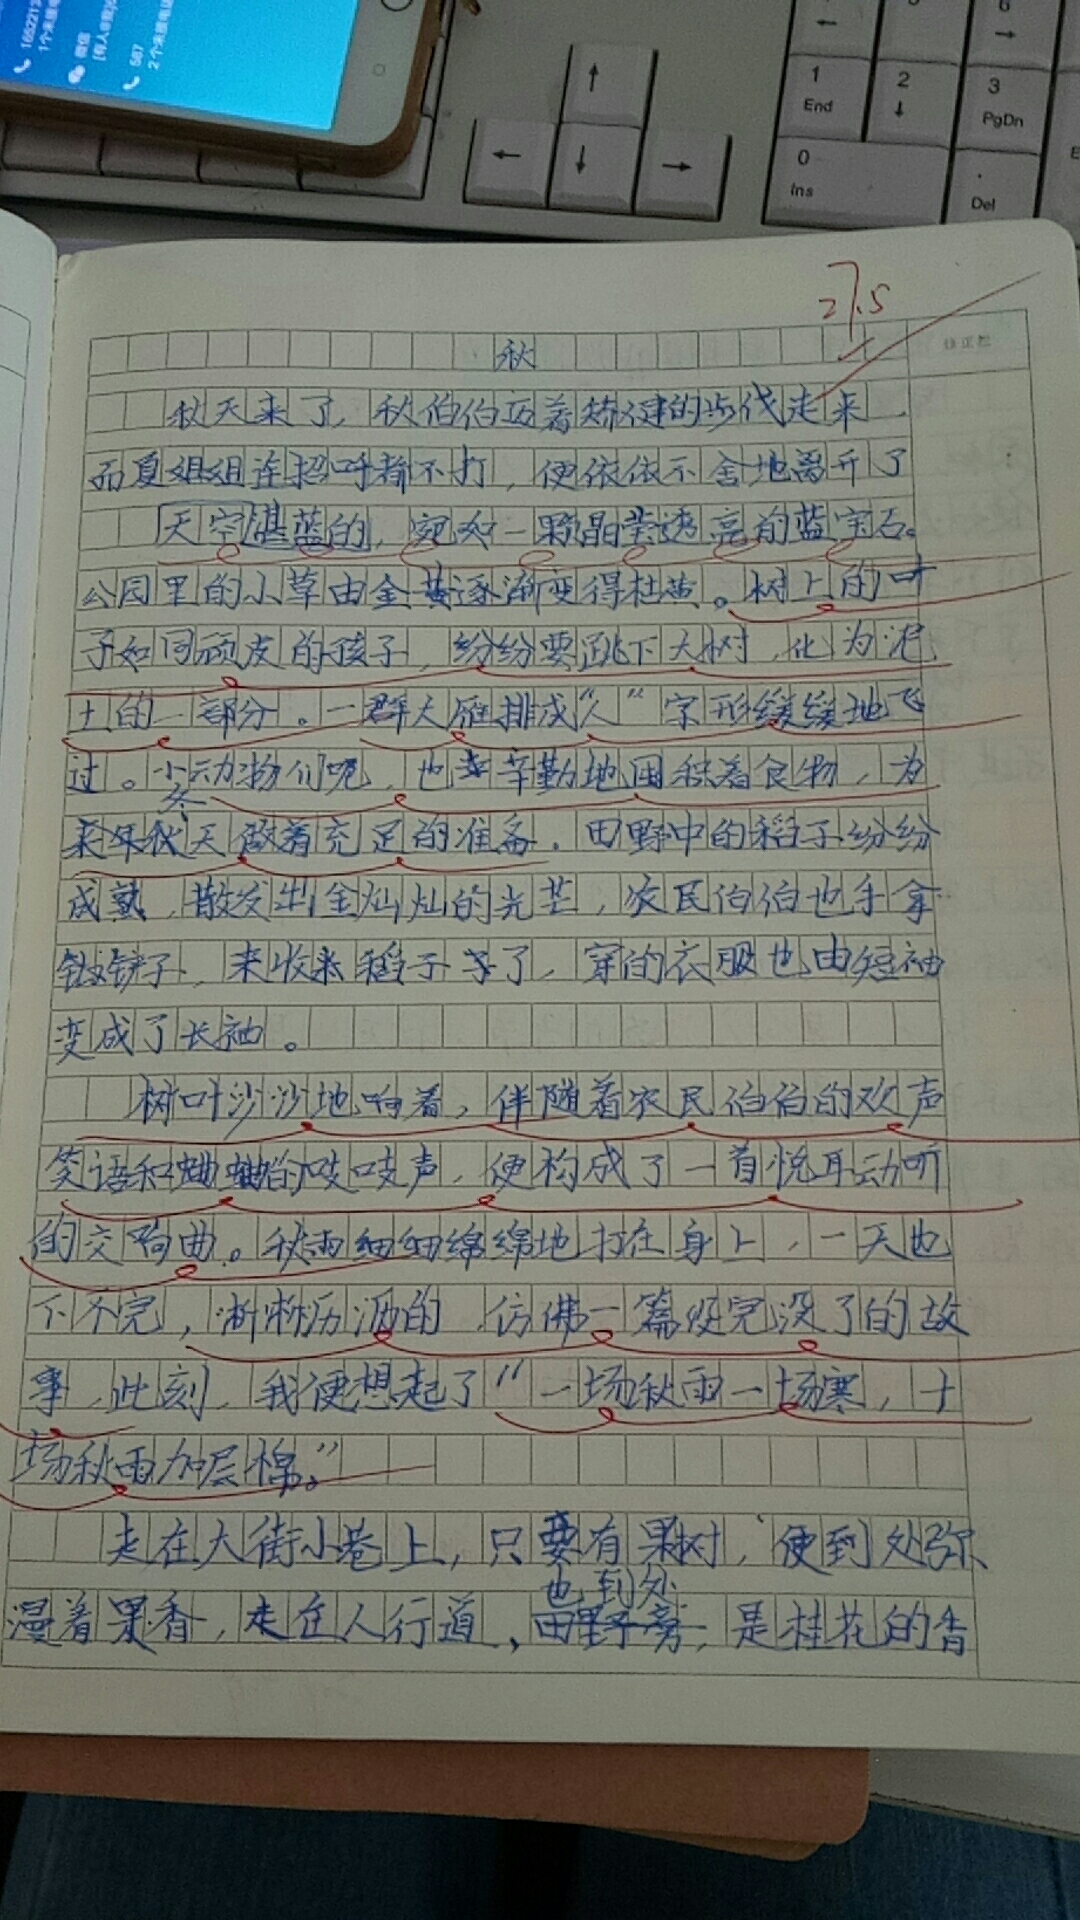 1个未接电话
微信
587
2个未接电话
6
1
End
2
3
PgDn
0
Ins
.
Del
27.5
秋
修正栏
秋天来了，秋伯伯迈着矫健的步伐走来，
而夏姐姐连招呼都不打，便依依不舍地离开了
天空湛蓝的，宛如一颗晶莹透亮的蓝宝石。
公园里的小草由金黄逐渐变得枯黄。树上的叶
子如同顽皮的孩子，纷纷要跳下大树，化为泥
土的一部分。一群大雁排成“人”字形缓缓地飞
过。小动物们呢，也辛勤地囤积着食物，为
冬
来年秋天做着充足的准备。田野中的稻子纷纷
成熟，散发出金灿灿的光芒，农民伯伯也手拿
铲子，来收稻子了，穿的衣服也由短袖
变成了长袖。
树叶沙沙地响着，伴随着农民伯伯的欢声
笑语和蛐蛐的吱吱声，便构成了一首悦耳动听
的交响曲。秋雨细细绵绵地打在身上，一天也
下不完，淅淅沥沥的，仿佛一篇没完没了的故
事，此刻，我便想起了“一场秋雨一场寒，十
场秋雨加层棉。”
走在大街小巷上，只要有果树，便到处弥
也到处
漫着果香，走在人行道，田野旁，是桂花的香